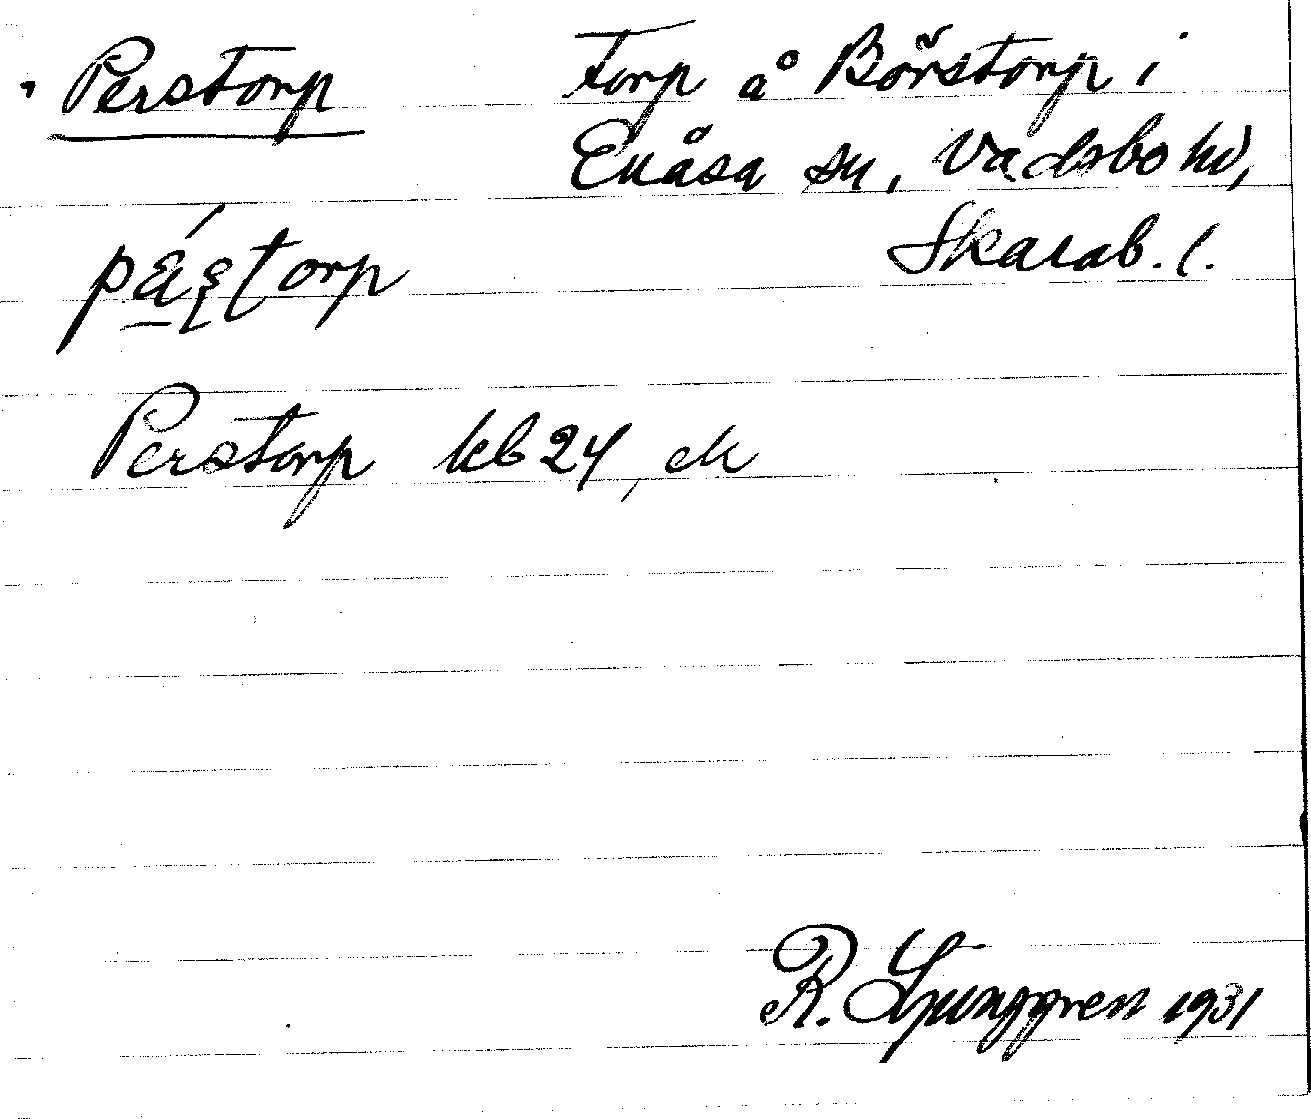 Perstorp
Torp å Börstorp i
Enåsa sn, Vadsbo hd,
Skarab. l.
Perstorp kb 24, ek
R. Ljunggren 1931